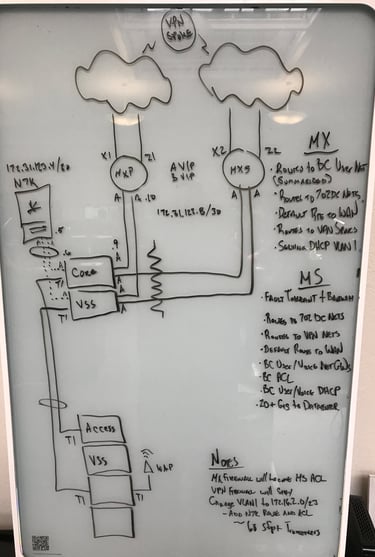 VPN
SPOKE
X1
Z1
X2
Z2
MXP
MXS
A VIP
B VIP
172.31.123.4/30
N7K
A
A
.10
A
A
172.31.123.8/30
.9
A
A
Core
VSS
A
A
T1
T1
Access
VSS
T1
T1
T1
WAP
MX
• Routes to BC User Net
(Summarized)
• Routes to 702DC Nets
• Default Rte to WAN
• Routes to VPN Spokes
DHCP VLAN 1
MS
• Fault Tolerant +
• Routes to 702 DC Nets
• Routes to VPN Nets
• Default Route to WAN
• BC User/Voice Net GWs
• BC ACL
• BC User/Voice DHCP
• 20+ Gig to Datacenter
Notes
MX Firewall will become MS ACL
VPN Firewall will Stay
Change VLAN1 to 172.16.2.0/23
- Add N7K Route and ACL